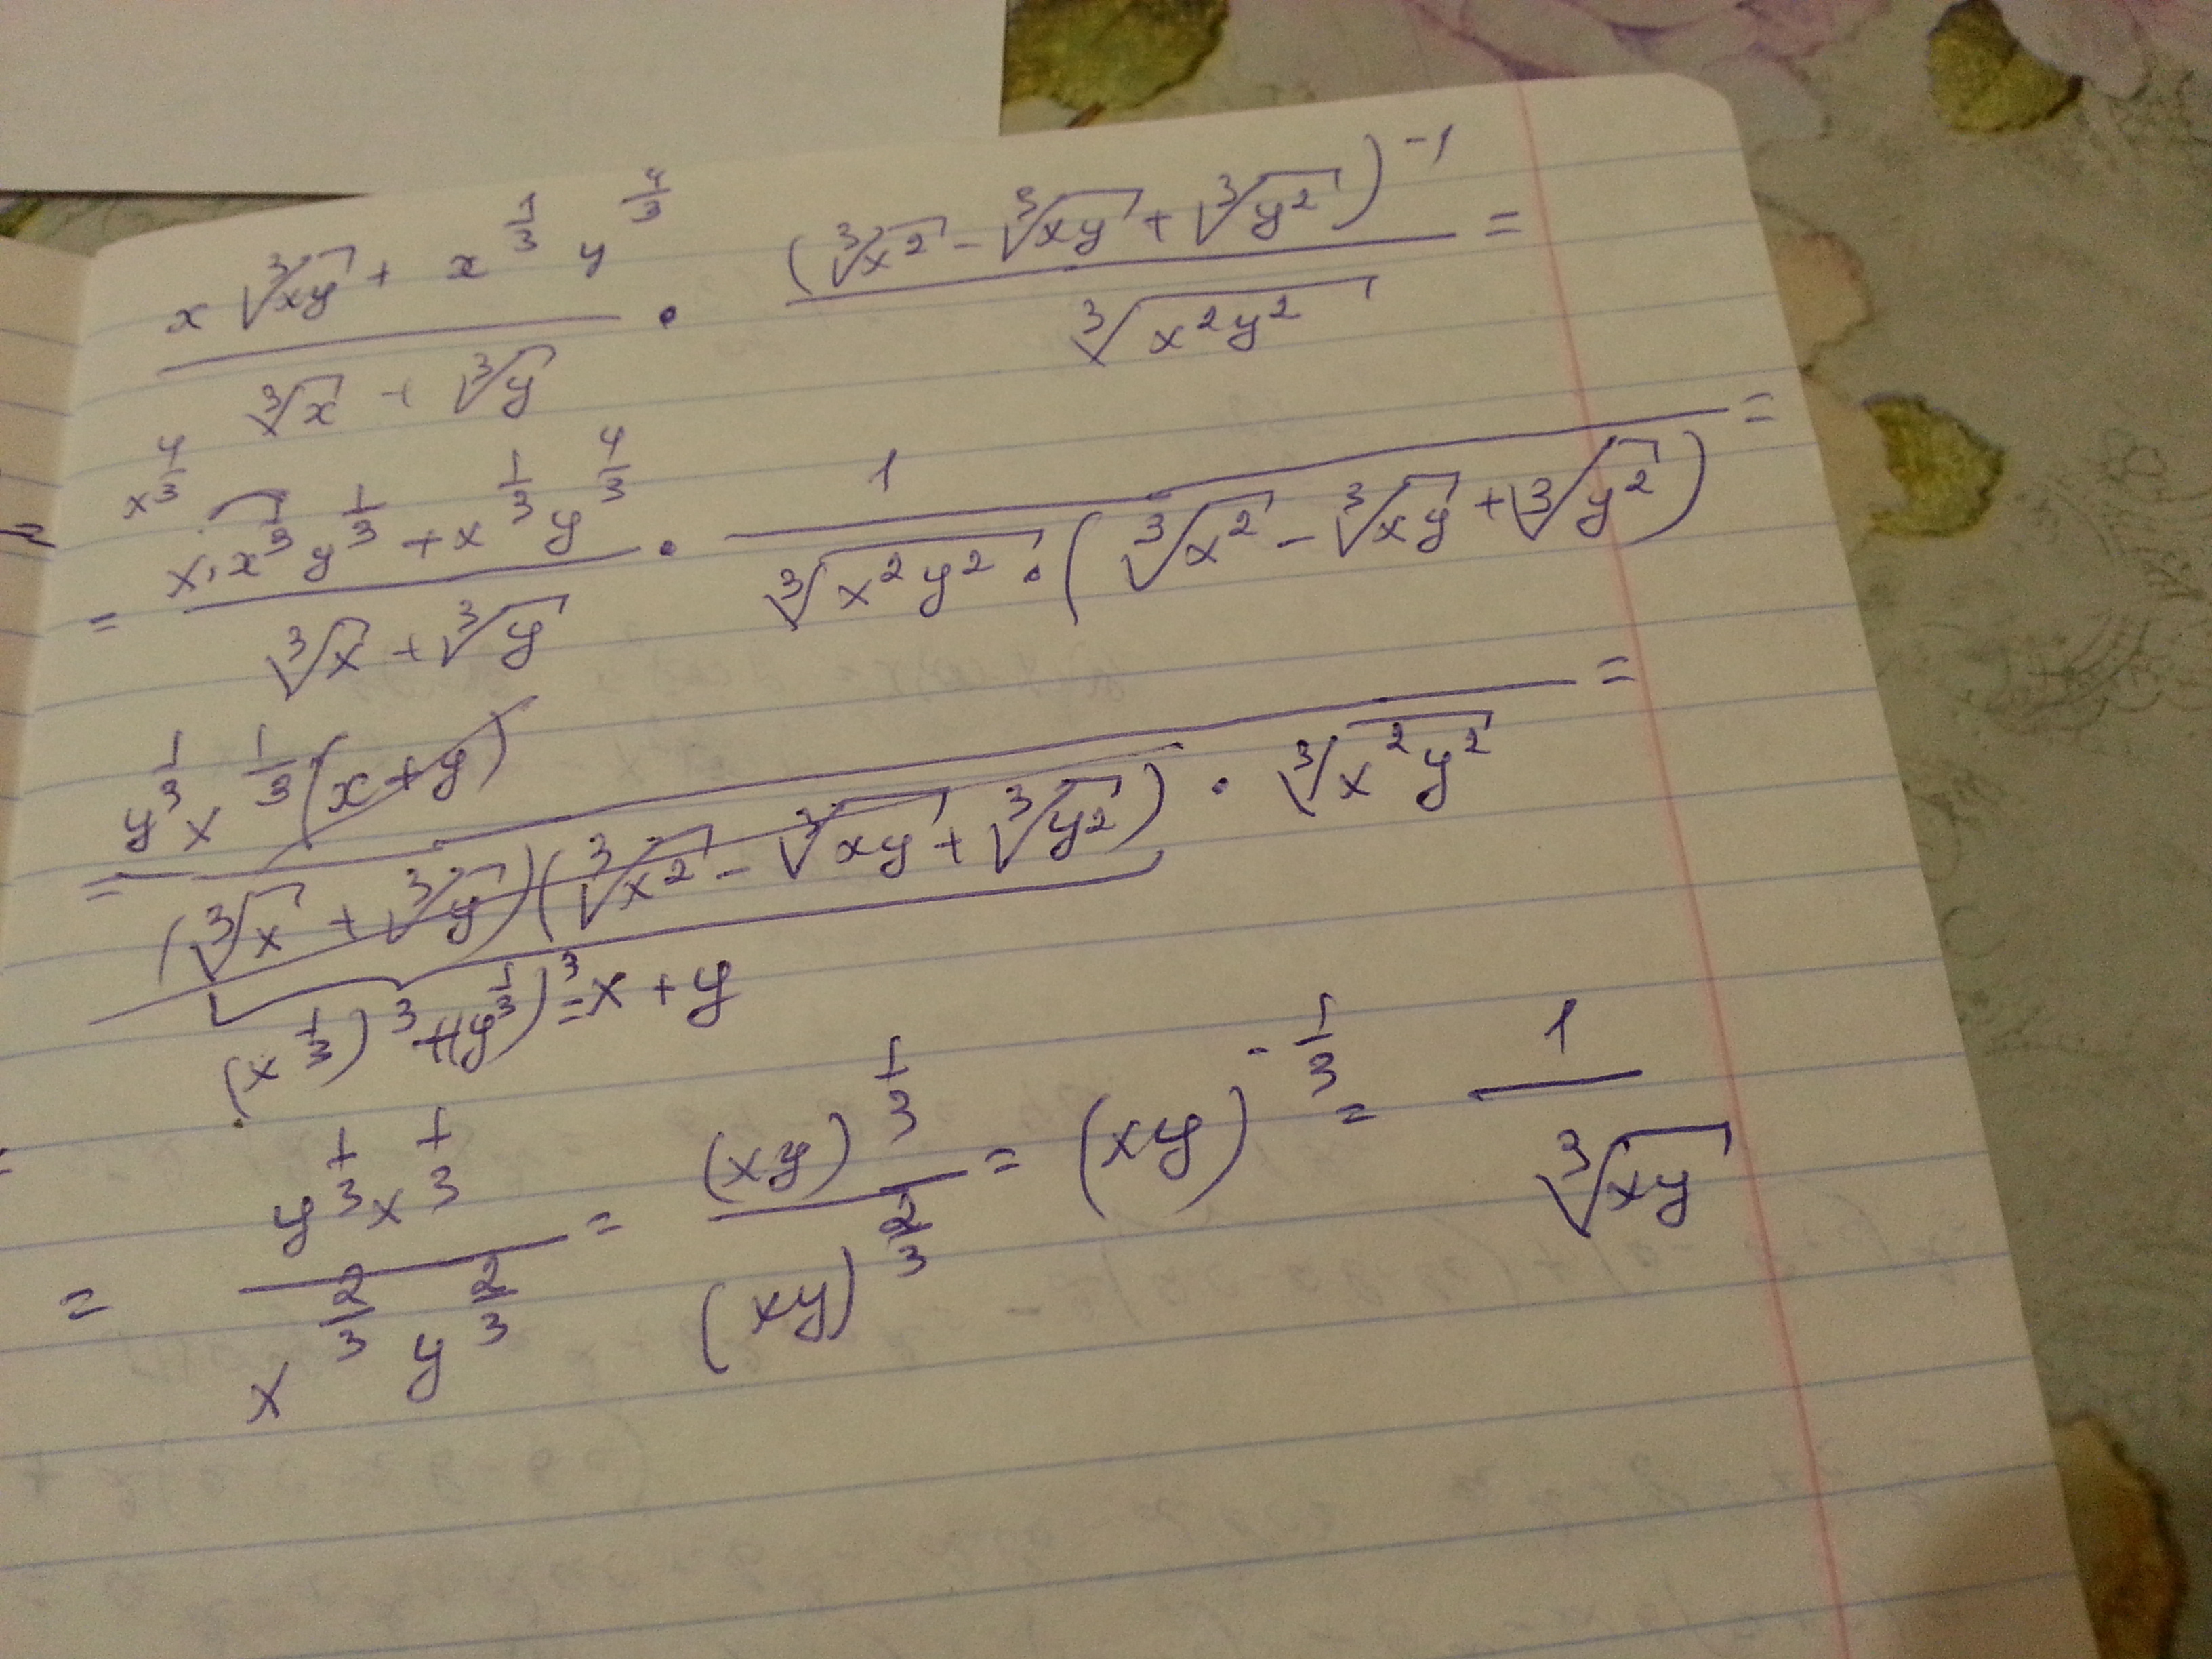 x∛(xy) + x^(1/3) y^(4/3) / (∛x + ∛y) · (∛(x²) - ∛(xy) + ∛(y²))^(-1) / ∛(x²y²) =
x^(4/3)
= (x·x^(1/3) y^(1/3) + x^(1/3) y^(4/3)) / (∛x + ∛y) · 1 / (∛(x²y²) · (∛(x²) - ∛(xy) + ∛(y²))) =
= y^(1/3) x^(1/3) (x+y) / ((∛x + ∛y)(∛(x²) - ∛(xy) + ∛(y²)) · ∛(x²y²)) =
(x^(1/3))³ + (y^(1/3))³ = x + y
= y^(1/3) x^(1/3) / (x^(2/3) y^(2/3)) = (xy)^(1/3) / (xy)^(2/3) = (xy)^(-1/3) = 1 / ∛(xy)